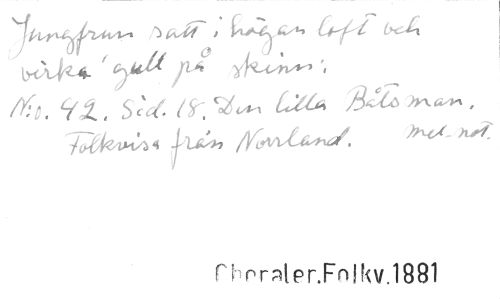 Jungfrun satt i högan loft och
virka' gull på skinn:
N:o. 42. Sid. 18. Den lilla Båtsman.
Folkvisa från Norrland. mel-not.
Choraler.Folkv.1881